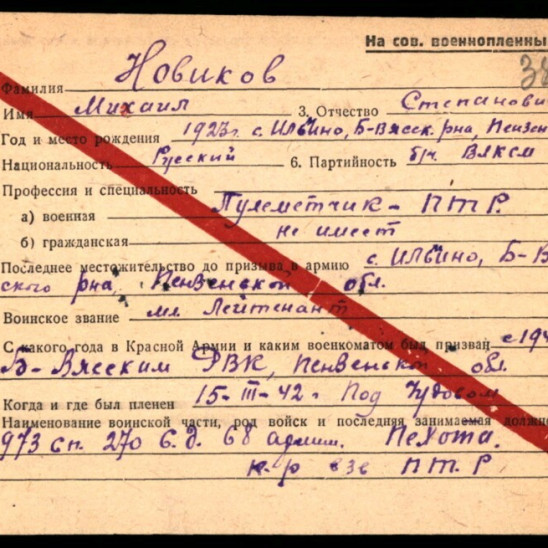 На сов. военнопленны
Фамилия Новиков
Имя Михаил 3. Отчество Степанови
Год и место рождения 1923г. с. Ильино, Б-Вясск. рна, Пензен
Национальность Русский 6. Партийность б/ч ВЛКСМ
Профессия и специальность
а) военная Пулеметчик - ПТР.
б) гражданская не имеет
Последнее местожительство до призыва в армию с. Ильино, Б-В
ского рна, Пензенской обл.
Воинское звание мл Лейтенант
С какого года в Красной Армии и каким военкоматом был призван с 194
Б-Вясским РВК, Пензенской обл.
Когда и где был пленен 15-III-42г. Под Чудовом
Наименование воинской части, род войск и последняя занимаемая должно
973 сп. 270 с.д. 68 армии. Пехота.
к-р взв ПТР